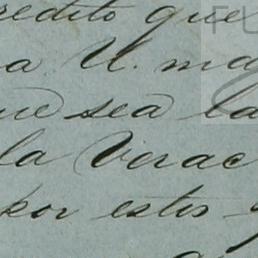 redito que
a V. ma
ue sea la
la Verac
por estos